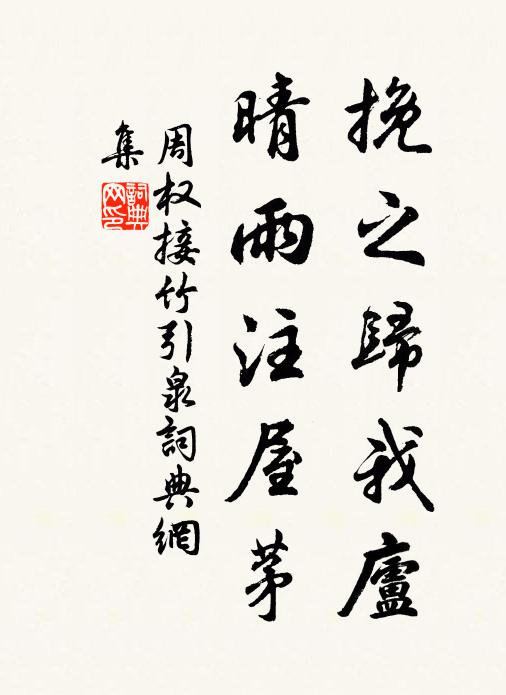 挽之歸我廬
晴雨注屋茅
周权接竹引泉詞典網
集
詞典網印